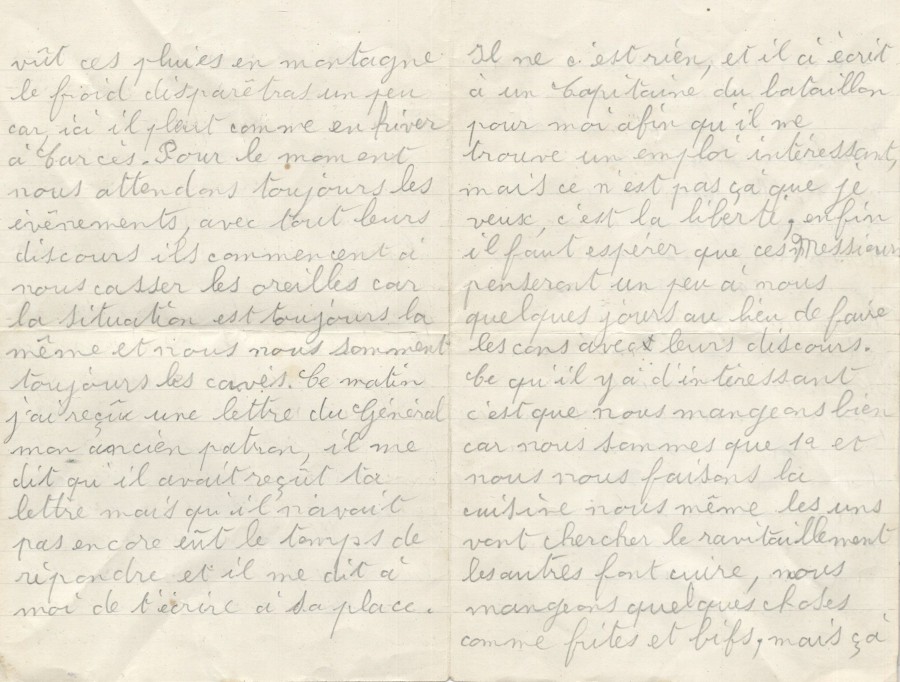 vût ces pluies en montagne
le froid disparêtras un peu
car, ici il pleut comme en hiver
à Carcès. Pour le moment
nous attendons toujours les
évênements, avec tout leurs
discours ils commencent à
nous casser les oreilles car
la situation est toujours la
même et nous nous somment
toujours les cavés. Ce matin
j'ai reçûe une lettre du Général
mon ancien patron, il me
dit qu'il avait reçût ta
lettre mais qu'il n'avait
pas encore eût le temps de
répondre et il me dit à
moi de t'écrire à sa place.
Il ne c'est rien, et il à écrit
à un Capitaine du bataillon
pour moi afin qu'il me
trouve un emploi intéressant,
mais ce n'est pas çà que je
veux, c'est la liberté, enfin
il faut espérer que ces Messieurs
penseront un peu à nous
quelques jours au lieu de faire
les cons avec leurs discours.
Ce qu'il y à d'intéressant
c'est que nous mangeons bien
car nous sommes que 19 et
nous nous faisons la
cuisine nous même les uns
vont chercher le ravitaillement
les autres font cuire, nous
mangeons quelques choses
comme frites et bifs, mais çà